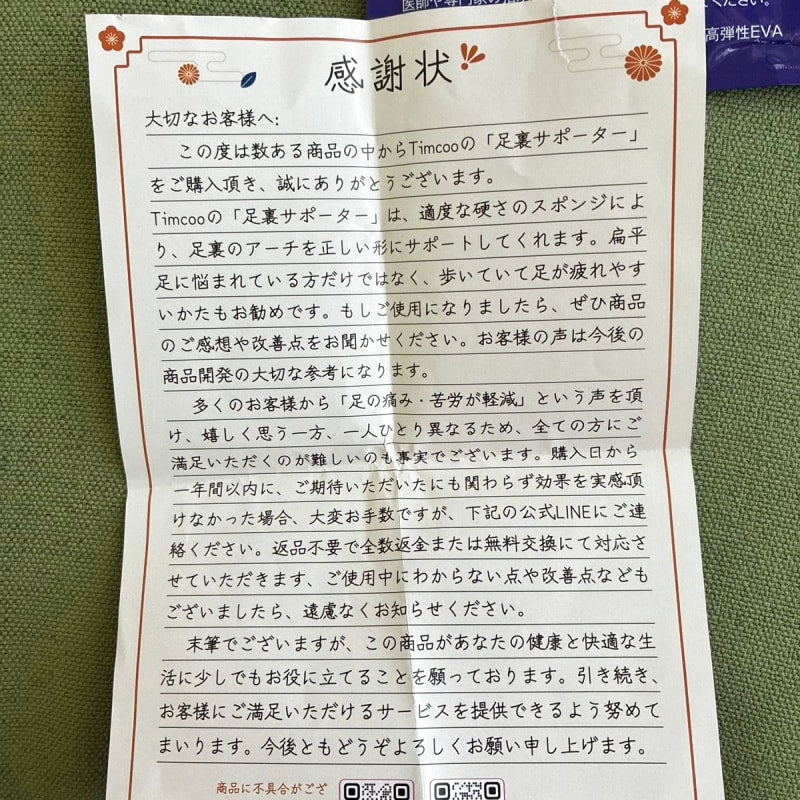 高弾性EVA
感謝状
大切なお客様へ:
この度は数ある商品の中からTimcooの「足裏サポーター」
をご購入頂き、誠にありがとうございます。
Timcooの「足裏サポーター」は、適度な硬さのスポンジによ
り、足裏のアーチを正しい形にサポートしてくれます。扁平
足に悩まれている方だけではなく、歩いていて足が疲れやす
いかたもお勧めです。もしご使用になりましたら、ぜひ商品
のご感想や改善点をお聞かせください。お客様の声は今後の
商品開発の大切な参考になります。
多くのお客様から「足の痛み・苦労が軽減」という声を頂
け、嬉しく思う一方、一人ひとり異なるため、全ての方にご
満足いただくのが難しいのも事実でございます。購入日から
一年間以内に、ご期待いただいたにも関わらず効果を実感頂
けなかった場合、大変お手数ですが、下記の公式LINEにご連
絡ください。返品不要で全数返金または無料交換にて対応さ
せていただきます、ご使用中にわからない点や改善点なども
ございましたら、遠慮なくお知らせください。
末筆でございますが、この商品があなたの健康と快適な生
活に少しでもお役に立てることを願っております。引き続き、
お客様にご満足いただけるサービスを提供できるよう努めて
まいります。今後ともどうぞよろしくお願い申し上げます。
商品に不具合がござ